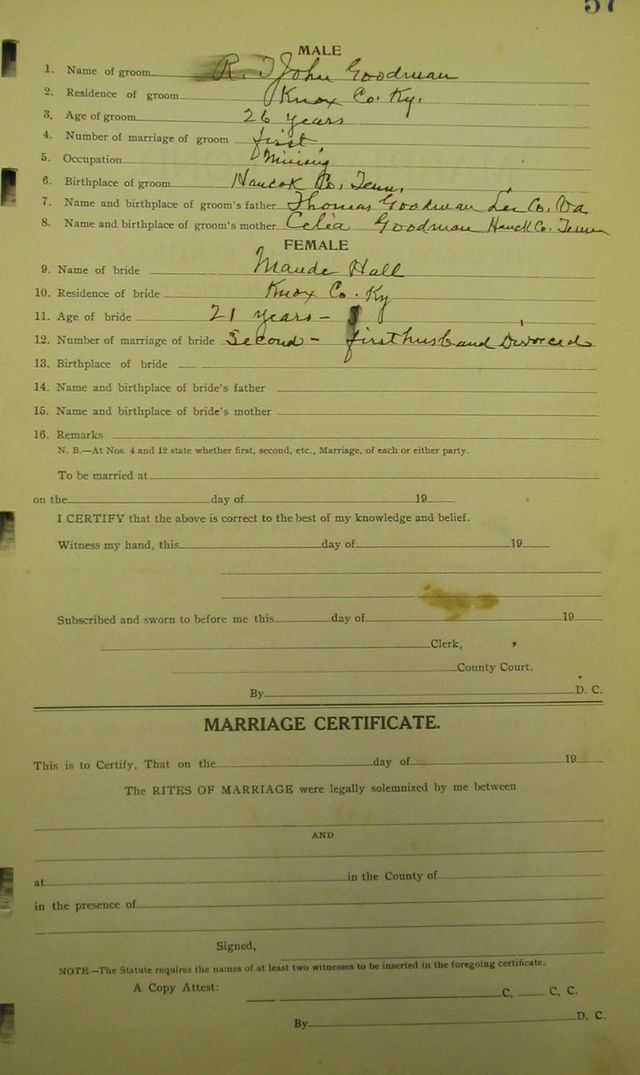 57
MALE
1. Name of groom R. T John Goodman
2. Residence of groom Knox Co. Ky.
3. Age of groom 26 years
4. Number of marriage of groom first
5. Occupation Mining
6. Birthplace of groom Hancok Co. Tenn.
7. Name and birthplace of groom's father Thomas Goodman Lee Co. Va
8. Name and birthplace of groom's mother Celia Goodman Hanck Co. Tenn
FEMALE
9. Name of bride Maude Hall
10. Residence of bride Knox Co. Ky
11. Age of bride 21 years -
12. Number of marriage of bride Second - first husband Divorced
13. Birthplace of bride
14. Name and birthplace of bride's father
15. Name and birthplace of bride's mother
16. Remarks
N. B.—At Nos. 4 and 12 state whether first, second, etc., Marriage, of each or either party.
To be married at
on the day of 19
I CERTIFY that the above is correct to the best of my knowledge and belief.
Witness my hand, this day of 19
Subscribed and sworn to before me this day of 19
Clerk,
County Court.
By D. C.
MARRIAGE CERTIFICATE.
This is to Certify, That on the day of 19
The RITES OF MARRIAGE were legally solemnized by me between
AND
at in the County of
in the presence of
Signed,
NOTE—The Statute requires the names of at least two witnesses to be inserted in the foregoing certificate.
A Copy Attest: C. C. C.
By D. C.